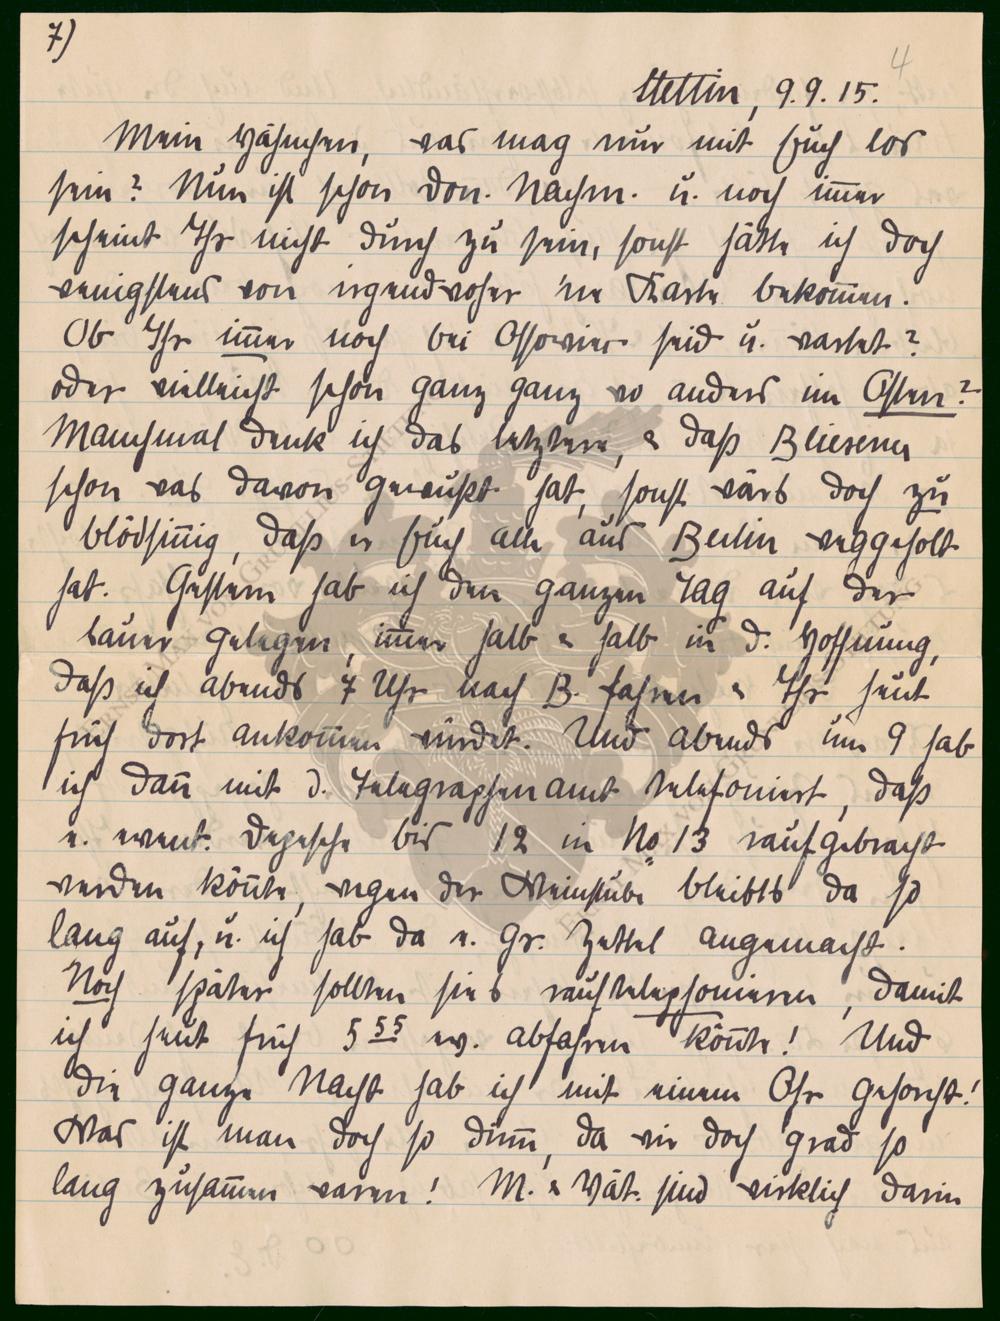 7)
4
Stettin, 9.9.15.
Mein Hähnchen, was mag nur mit Euch los
sein? Nun ist schon Don. Nachm. u. noch im̅er
scheint Ihr nicht durch zu sein, sonst hätte ich doch
wenigstens von irgendwoher 'ne Karte bekom̅en.
Ob Ihr im̅er noch bei Ossowiec seid u. wartet?
oder vielleicht schon ganz ganz wo anders im Osten?
Manchmal denk ich das letztere, & daß Bliesener
schon was davon gewußt hat, sonst wärs doch zu
blödsin̅ig, daß er Euch alle aus Berlin weggeholt
hat. Gestern hab ich den ganzen Tag auf der
Lauer gelegen, im̅er halb & halb in d. Hoffnung,
daß ich abends 7 Uhr nach B. fahren & Ihr heut
früh dort ankom̅en würdet. Und abends um 9 hab
ich dan̅ mit d. Telegraphenamt telefoniert, daß
e. event. Depesche bis 12 in No 13 raufgebracht
werden kön̅te, wegen der Weinstube bleibts da so
lang auf, u. ich hab da e. gr. Zettel angemacht.
Noch später sollten sies rauftelephonieren, damit
ich heut früh 5 55 ev. abfahren kön̅te! Und
die ganze Nacht hab ich mit einem Ohr gehorcht!
Was ist man doch so dum̅, da wir doch grad so
lang zusam̅en waren! M. & Vät. sind wirklich darin